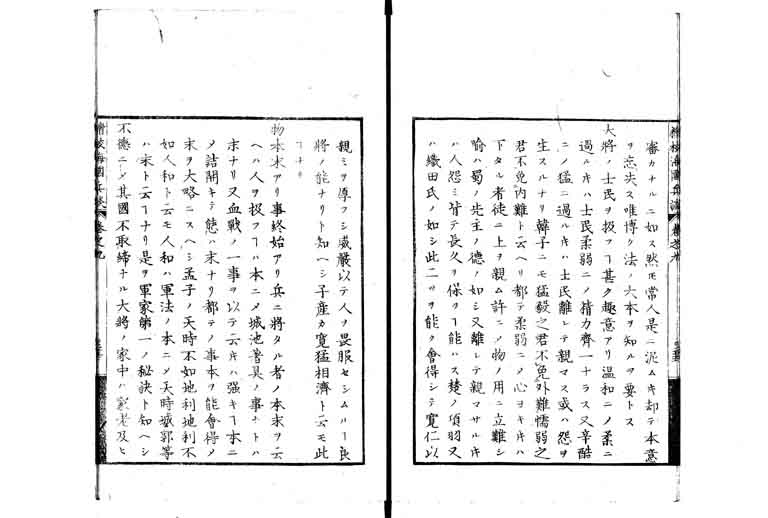 審カナルニ如ス然𪜈常人是ニ泥ムキ却テ本意
ヲ忘失ス唯博ク法ノ大本ヲ知ルヲ要トス
大將ノ士民ヲ扱フヿ甚タ趣意アリ温和ニノ柔ニ
過ルキハ士民柔弱ニノ精力齊一ナラス又辛酷
ニノ猛ニ過ルキハ士民離レテ親マス或ハ怨ヲ
生スルナリ韓子ニモ猛毅之君不免外難懦弱之
君不免内難ト云ヘリ都テ柔弱ニノ心ヨキキハ
下タル者徒ニ上ヲ親ム許ニノ物ノ用ニ立難シ
喻ハ蜀ノ先主ノ德ノ如シ又離レテ親マサルキ
ハ人怨ミ背テ長久ヲ保ヿ能ハス楚ノ項羽又
ハ織田氏ノ如シ此二ツヲ能ク會得シテ寛仁以
親ミヲ厚フシ威嚴以テ人ヲ畏服セシムルヿ良
將ノ能ナリト知ヘシ子產カ寛猛相濟ト云モ此
ヿナリ
物本末アリ事終始アリ兵ニ將タル者ノ本末ヲ云
ヘハ人ヲ扱フヿハ本ニノ城池器具ノ事ナトハ
末ナリ又血戰ノ一事ヲ以テ云キハ强キヿ本ニ
ノ詰開キテ態ハ末ナリ都テノ事本ヲ能會得ノ
末ヲ大略ニスヘシ孟子ノ天時不如地利地利不
如人和ト云モ人和ハ軍法ノ本ニノ天時城郭等
ハ末ト云ヿナリ是ヲ軍家第一ノ秘訣ト知ヘシ
不德ニノ其國不取締ナル大將ノ家中ハ家老及ヒ